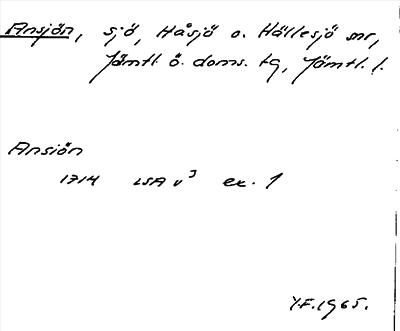 Ansjön, sjö, Håsjö o. Hällesjö snr,
Jämtl ö. doms. tg, Jämtl. l.
Ansiön
1714 LSA v³ ex. 1
Y.F. 1965.